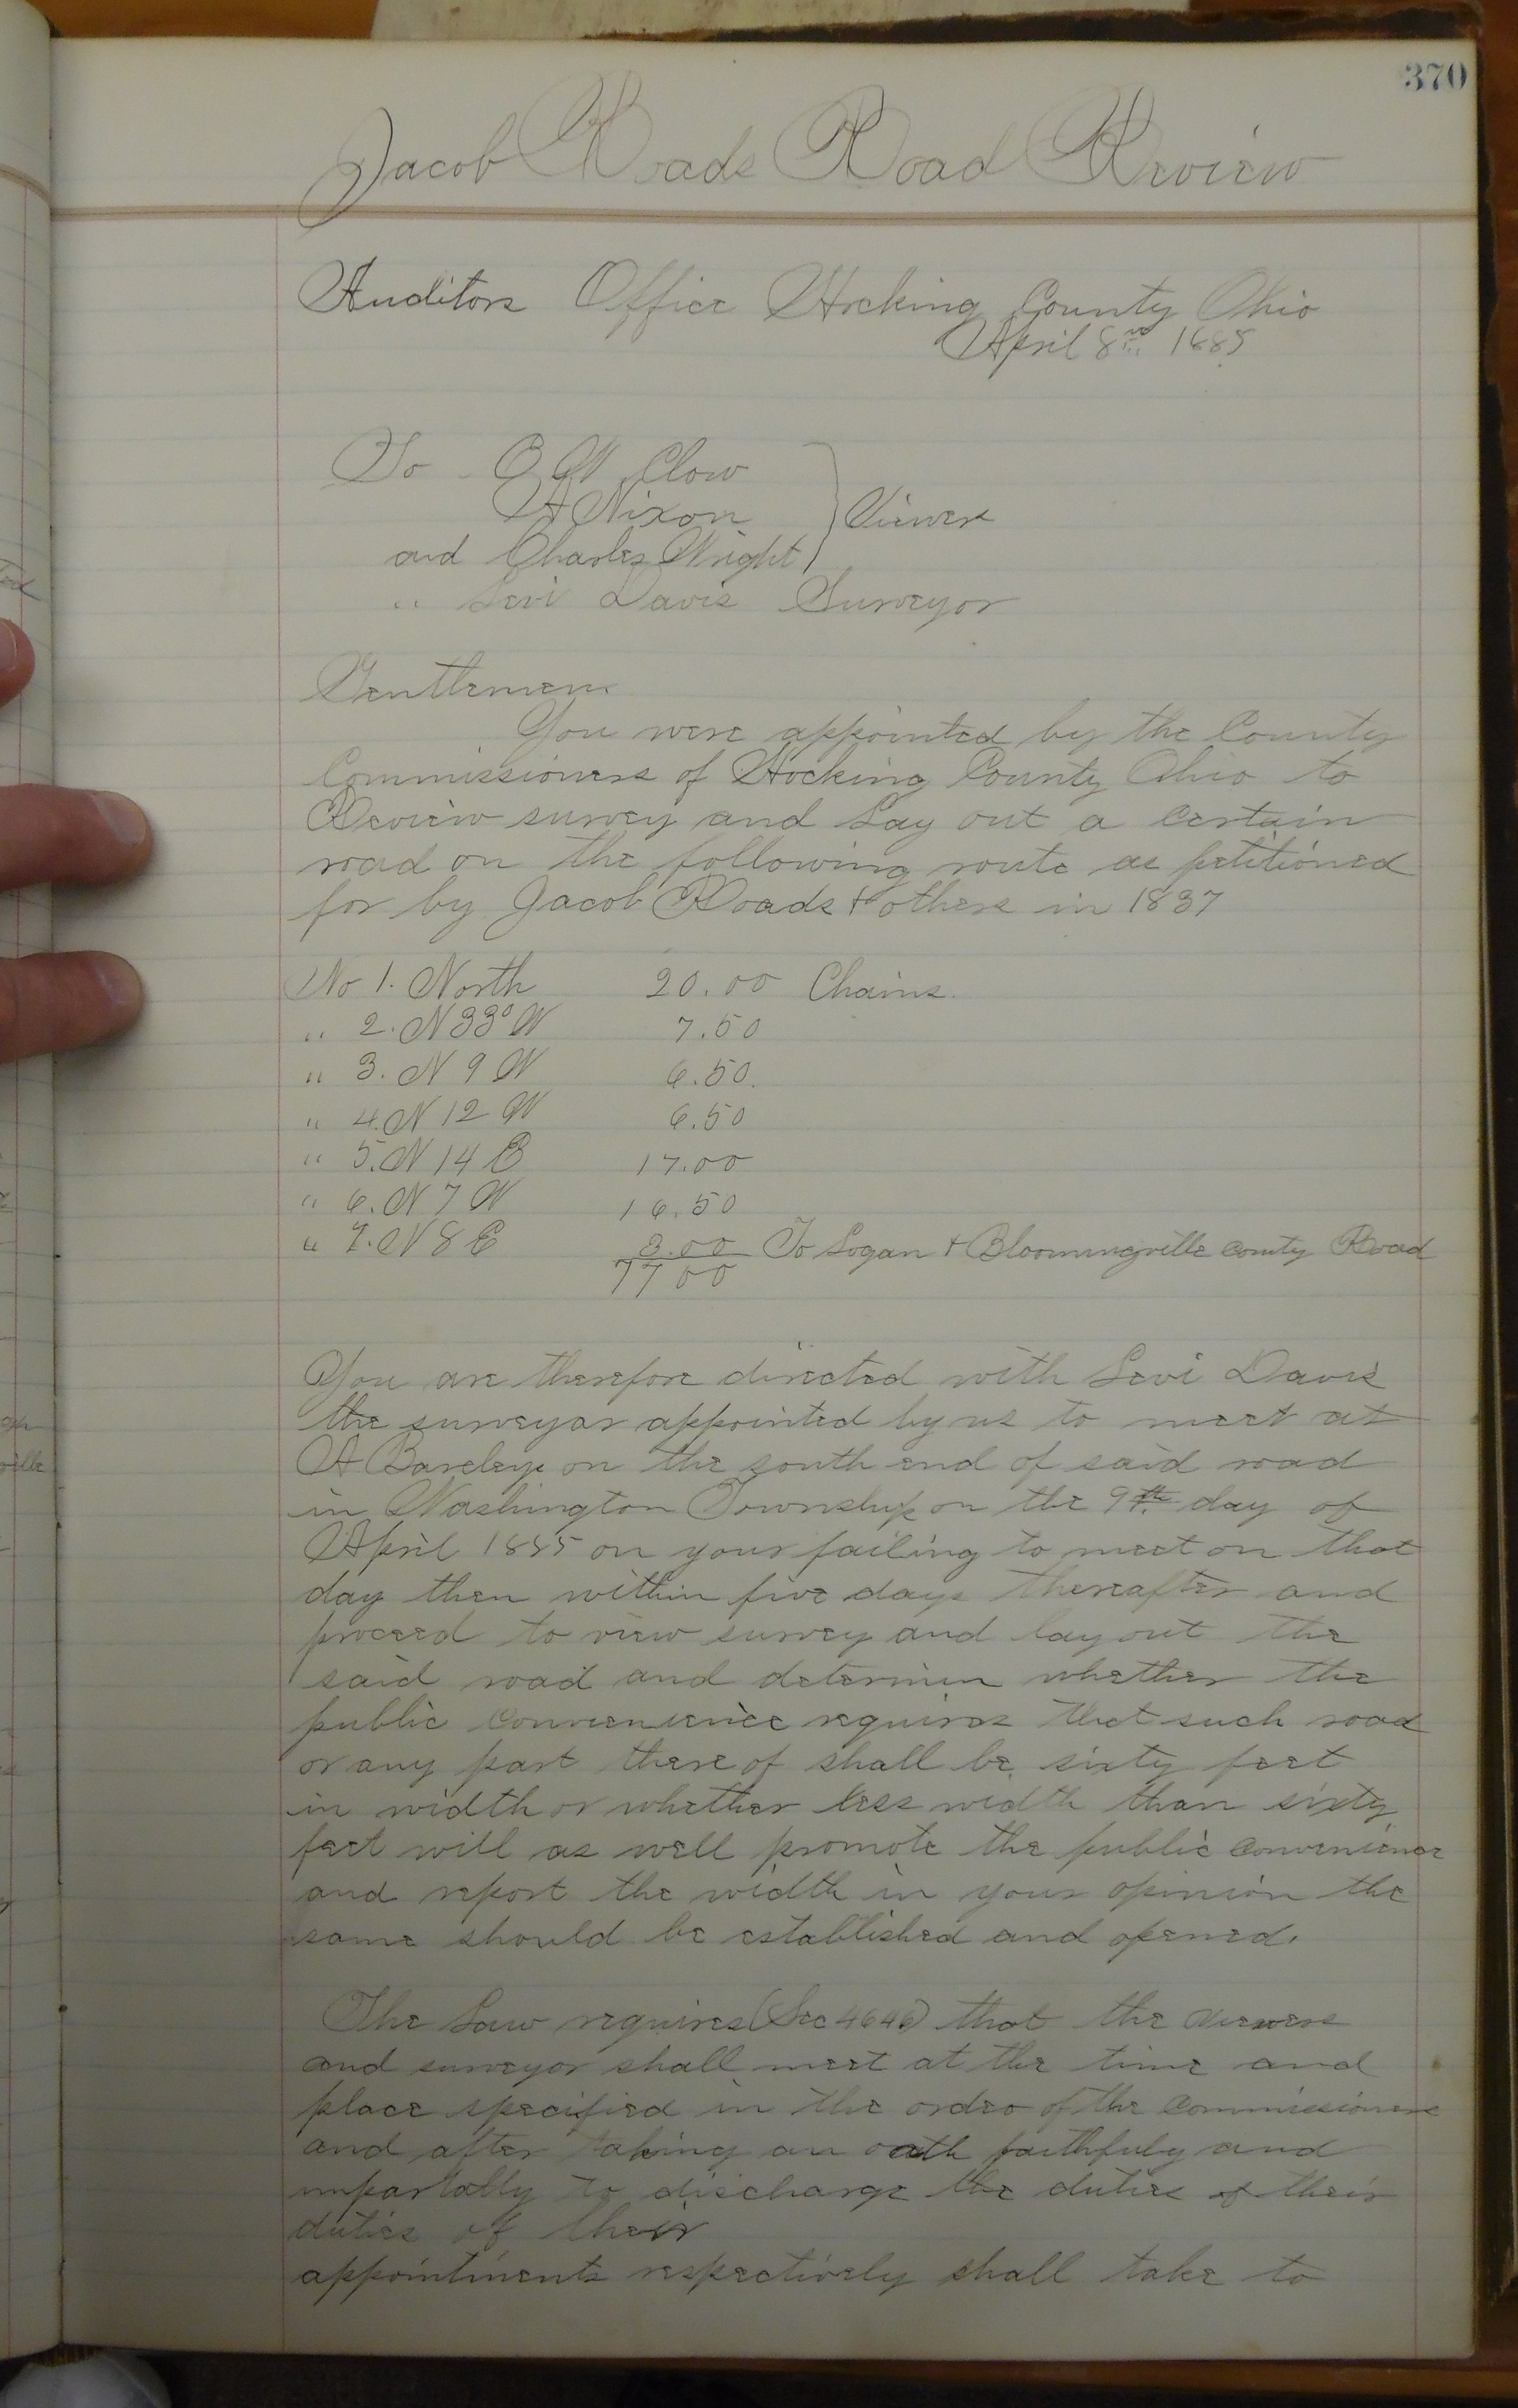 370
Jacob Roads Road Review
Auditors Office Hocking County Ohio
April 8th 1885
To E W Clow
A Nixon } Viewers
and Charles Wright
" Levi Davis Surveyor
Gentlemen.
You were appointed by the County
Commissioners of Hocking County Ohio to
Review survey and Lay out a certain
road on the following route as petitioned
for by Jacob Roads & others in 1837
No 1. North 20.00 Chains.
" 2. N 33° W 7.50
" 3. N 9 W 6.50.
" 4. N 12 W 6.50
" 5. N 14 E 17.00
" 6. N 7 W 16.50
" 7. N 8 E 3.00 To Logan & Bloomingville county Road
77 00
You are therefore directed with Levi Davis
the surveyor appointed by us to meet at
A Barcleys on the south end of said road
in Washington Township on the 9th day of
April 1885 on your failing to meet on that
day then within five days thereafter and
proceed to view survey and lay out the
said road and determin whether the
public convenience requires that such road
or any part there of shall be sixty feet
in width or whether less width than sixty
feet will as well promote the public convenience
and report the width in your opinion the
same should be established and opened.
The Law requires (Sec 4646) that the viewers
and surveyor shall meet at the time and
place specified in the order of the commissioners
and after taking an oath faithfuly and
impartally to discharge the duties of their
duties of their
appointments respectively shall take to